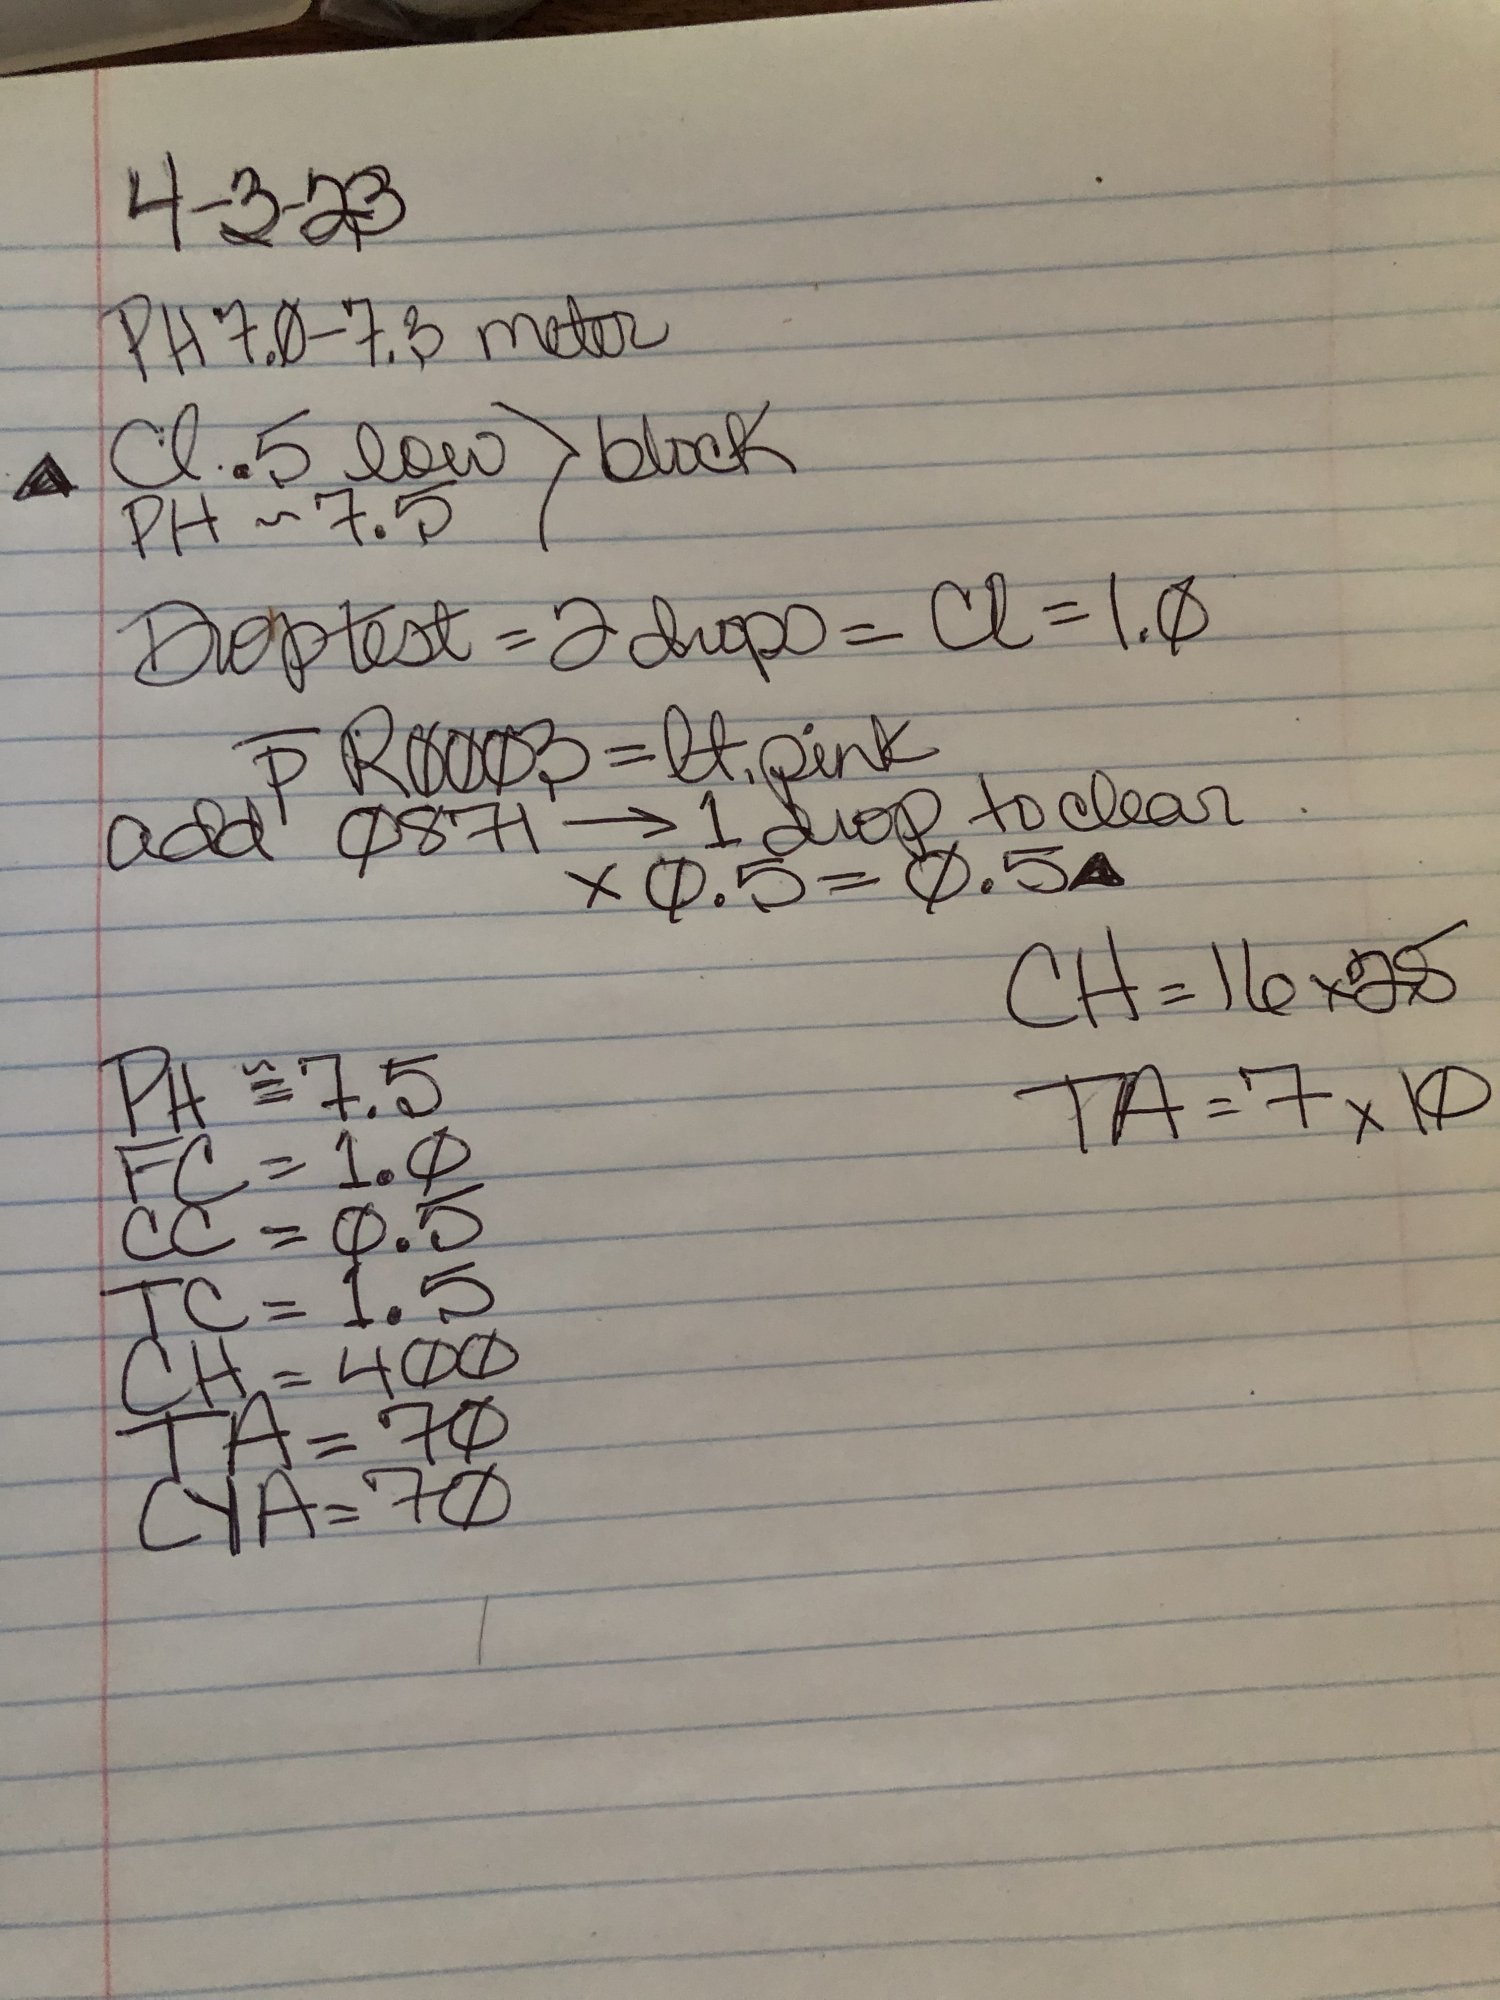 4-3-23
PH 7.0-7.3 meter
▲ Cl..5 low } block
PH ~ 7.5
Drop test = 2 drops = Cl = 1.0
p̄ R0003 = lt. pink
add 0871 → 1 drop to clear
x 0.5 = 0.5▲
CH = 16 x 25
TA = 7 x 10
PH ≅ 7.5
FC = 1.0
CC = 0.5
TC = 1.5
CH = 400
TA = 70
CYA = 70